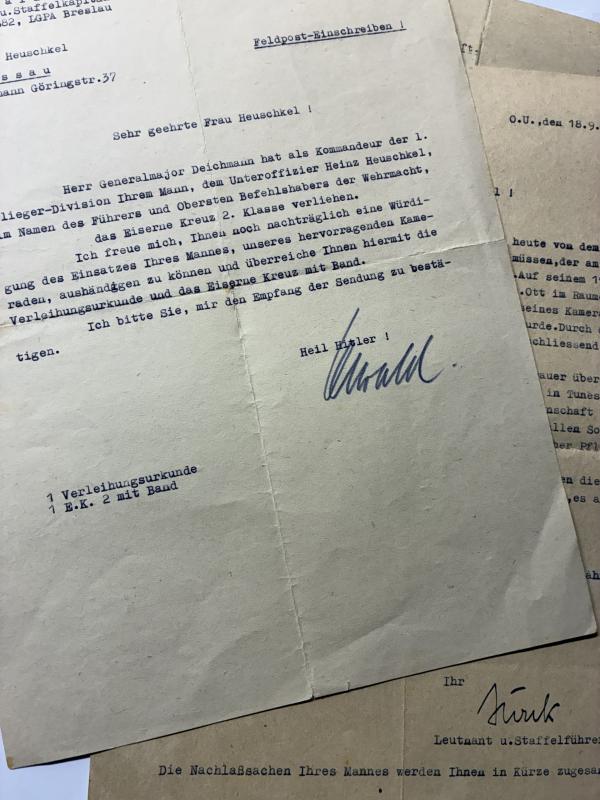 u.Staffelkapitän
82, LGPA Breslau
Heuschkel
s s a u
mann Göringstr.37
Feldpost-Einschreiben !
Sehr geehrte Frau Heuschkel !
Herr Generalmajor Deichmann hat als Kommandeur der 1.
lieger-Division Ihrem Mann, dem Unteroffizier Heinz Heuschkel,
im Namen des Führers und Obersten Befehlshabers der Wehrmacht,
das Eiserne Kreuz 2. Klasse verliehen.
Ich freue mich, Ihnen noch nachträglich eine Würdi-
gung des Einsatzes Ihres Mannes, unseres hervorragenden Kame-
raden, aushändigen zu können und überreiche Ihnen hiermit die
Verleihungsurkunde und das Eiserne Kreuz mit Band.
Ich bitte Sie, mir den Empfang der Sendung zu bestä-
tigen.
Heil Hitler !
1 Verleihungsurkunde
1 E.K. 2 mit Band
ft-
O.U.,den 18.9.
l !
heute von dem
müssen,der am
.Auf seinem 1
.Ott im Raume
seines Kamera
urde.Durch
schliessend
auer über
in Tunes
nschaft
llen So
er Pfl
en die
,es a
äh
Ihr
Leutnant u.Staffelführer
Die Nachlaßsachen Ihres Mannes werden Ihnen in Kürze zugesan